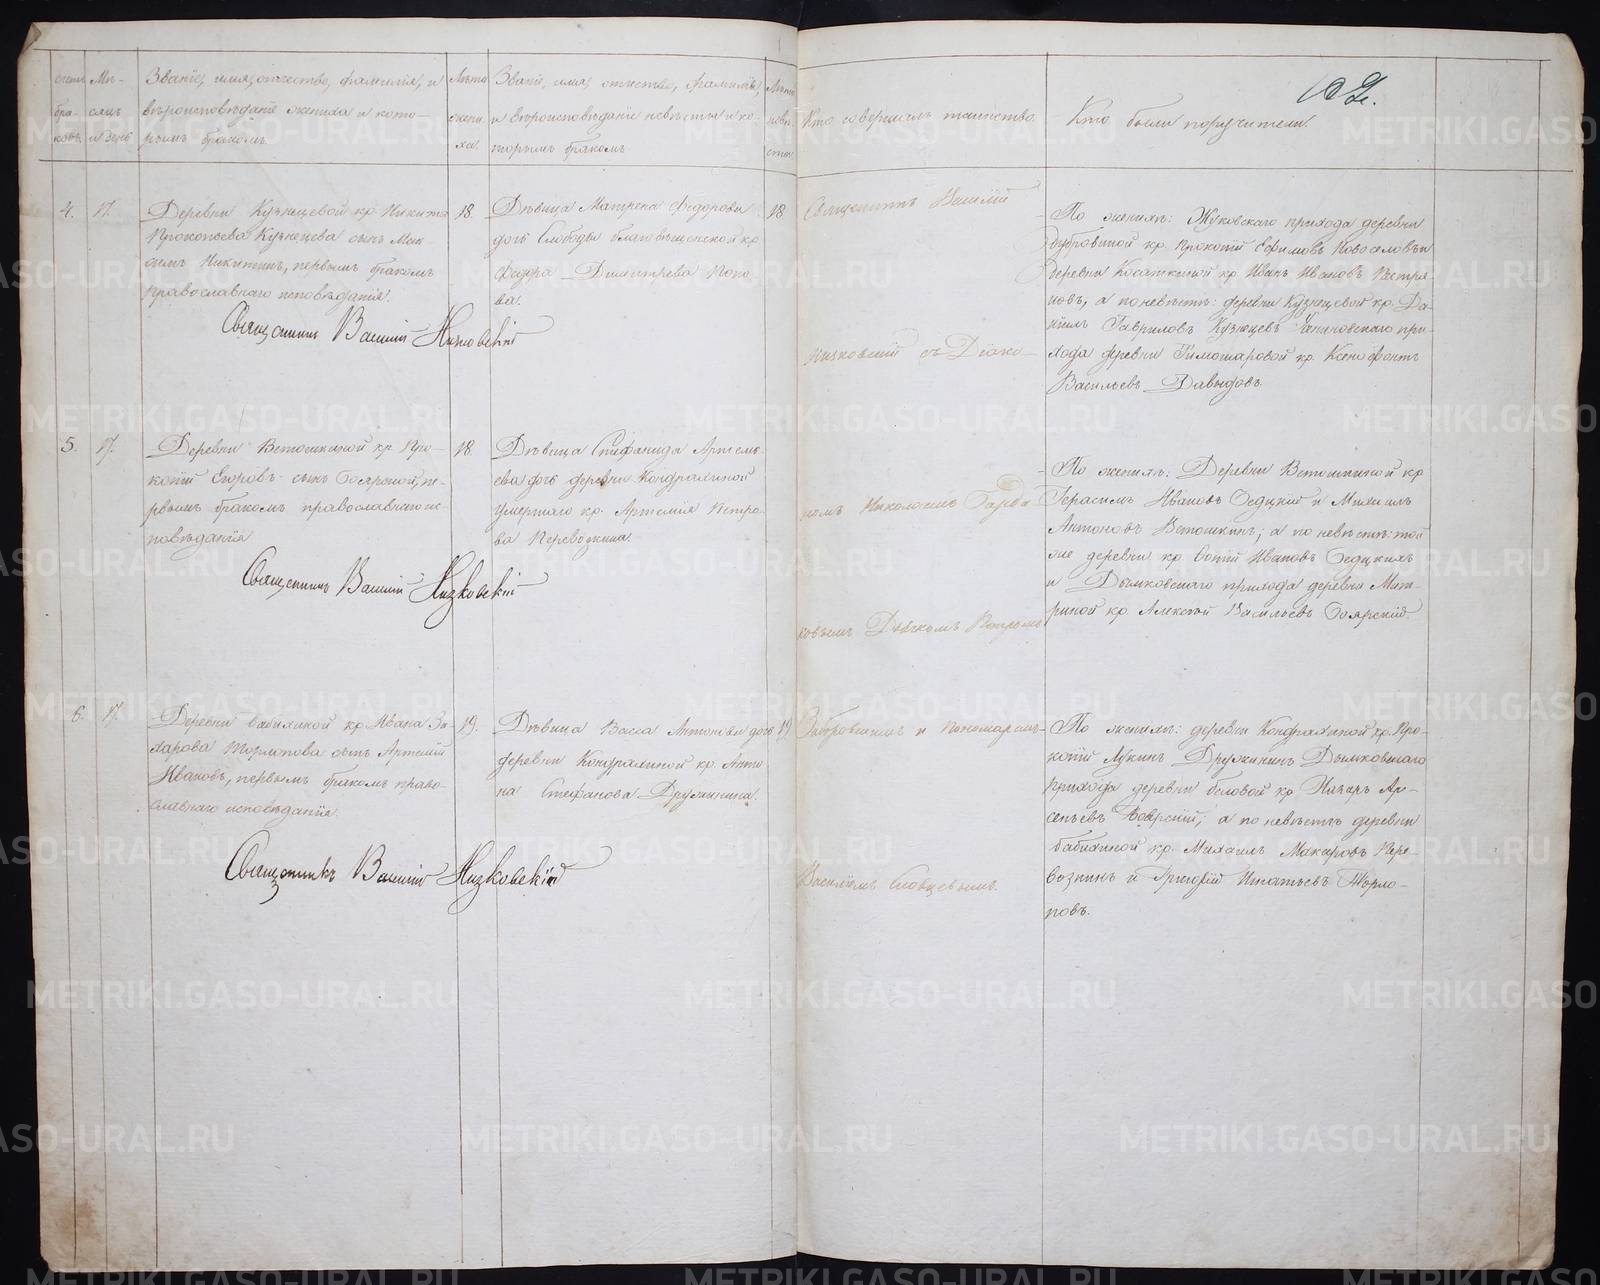 Счетъ браковъ.
Мѣсяцъ и день
Званіе, имя, отчество, фамилія, и
вѣроисповѣданіе жениха и кото-
рымъ бракомъ.
Лѣта жени-
ха.
Званіе, имя, отчество, фамилія,
и вѣроисповѣданіе невѣсты и ко-
торымъ бракомъ
Лѣта невѣ-
сты
Кто совершалъ таинство.
Кто были поручители.
4.
17.
Деревни Кузнецовой кр. Никиты
Прокопьева Кузнецова сынъ Мак-
симъ Никитинъ, первымъ бракомъ
православнаго исповѣданія.
Священникъ Василій Низковскій
18.
Дѣвица Матрена Федорова
дочь Слободы Благовѣщенской кр.
Федора Димитрева Попо-
ва.
18
Священникъ Василій
По женихѣ: Жуковскаго прихода деревни
Дубровиной кр. Прокопій Ефимовъ Новоселовъ и
деревни Косаткиной кр. Иванъ Ивановъ Пестря-
ковъ, а по невѣстѣ: деревни Кузнецовой кр. Да-
ніилъ Гавриловъ Кузнецовъ при-
хода деревни кр. Ксенофонтъ
Васильевъ Давыдовъ
Низковскій съ Діако-
5.
17.
Деревни Ветошкиной кр. Про-
копій Егоровъ сынъ Боярской, пе-
рвымъ бракомъ православнаго ис-
повѣданія
Священникъ Василій Низковскій
18.
Дѣвица Стефанида Артемь-
ева дочь деревни Кондрахиной
умершаго кр. Артемія Петро-
ва Перевозкина.
номъ Николаемъ
По женихѣ: Деревни Ветошкиной кр.
Герасимъ Ивановъ Седцкій и Михаилъ
Антоновъ Ветошкинъ; а по невѣстѣ: той
же деревни кр. Ивановъ Седцкихъ
и Дымковскаго прихода деревни Мит-
риной кр. Алексѣй Васильевъ Боярскій.
ковымъ Дьячкомъ Петромъ
6.
17.
Деревни Бабихиной кр. Ивана За-
харова Торлопова сынъ Артемій
Ивановъ, первымъ бракомъ право-
славнаго исповѣданія.
Священникъ Василій Низковскій
19.
Дѣвица Васса Антонова дочь
деревни Кондрахиной кр. Анто-
на Стефанова Дружинина.
19
и Пономаремъ
По женихѣ: деревни Кондрахиной кр. Про-
копій Лукинъ Дружининъ Дымковскаго
прихода деревни Беловой кр. Назаръ Ар-
сеньевъ Боярскій; а по невѣстѣ деревни
Бабихиной кр. Михаилъ Макаровъ Пере-
возкинъ и Григорій Игнатьевъ Торло-
повъ.
Василіемъ Словцовымъ.
METRIKI.GASO-URAL.RU